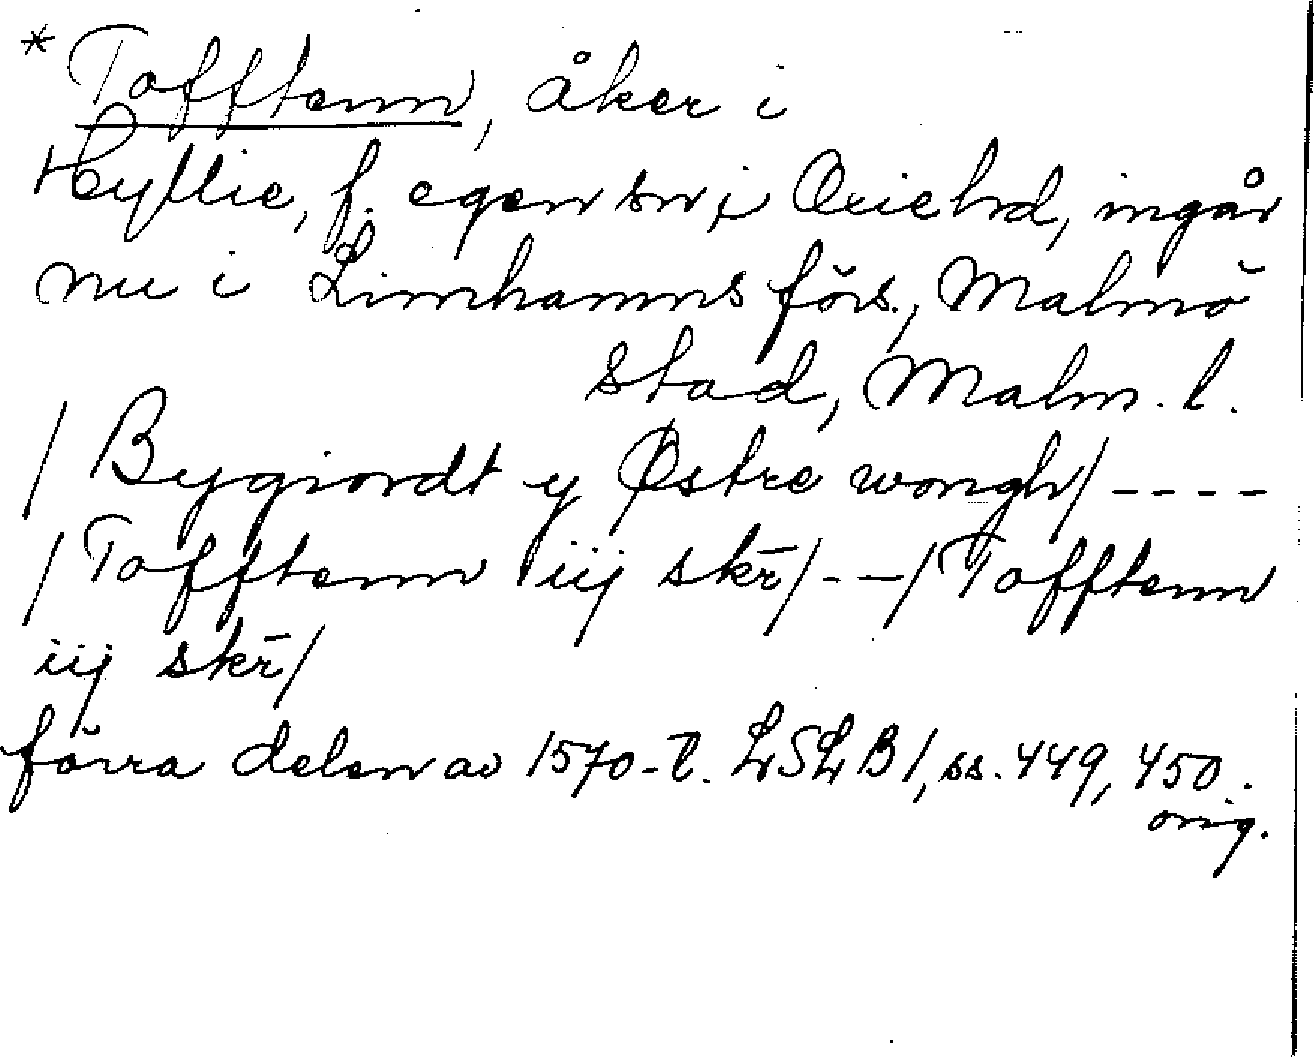 *Tofftenn, åker i
Hyllie, f. egen sn i Oxie hd, ingår
nu i Limhamns förs., Malmö
stad, Malm. l.
/ Bygiordt y Østre wongh/ ----
/ Tofftenn iij skr̄/ -- / Tofftenn
iij skr̄/
förra delen av 1570-t. LSLB 1, ss. 449, 450.
orig.